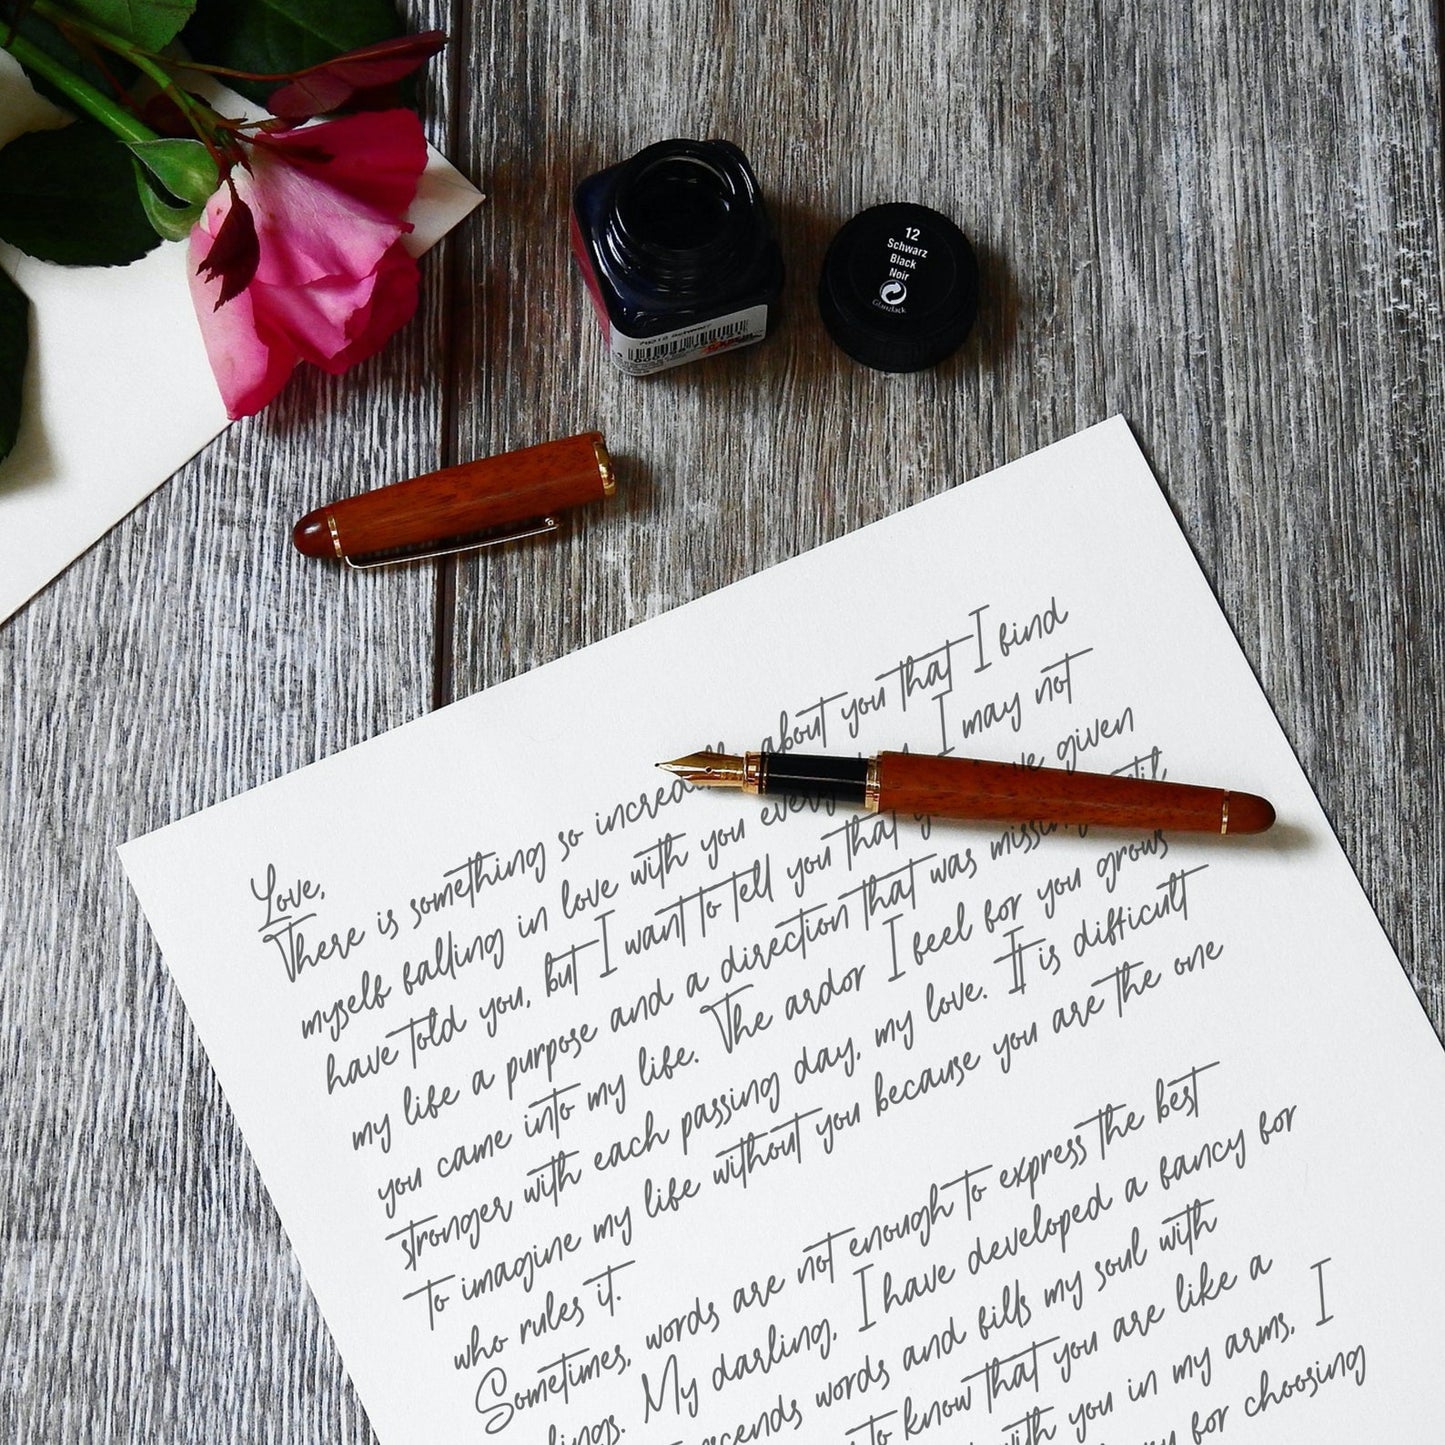 12
Schwarz
Black
Noir
Love,
There is something so about you that I find
myself falling in love with you I may not
have told you, but I want to tell you that given
my life a purpose and a direction that was
you came into my life. The ardor I feel for you grows
stronger with each passing day, my love. It is difficult
to imagine my life without you because you are the one
who rules it.
Sometimes, words are not enough to express the best
My darling, I have developed a fancy for
words and fills my soul with
to know that you are like a
with you in my arms. I
for choosing